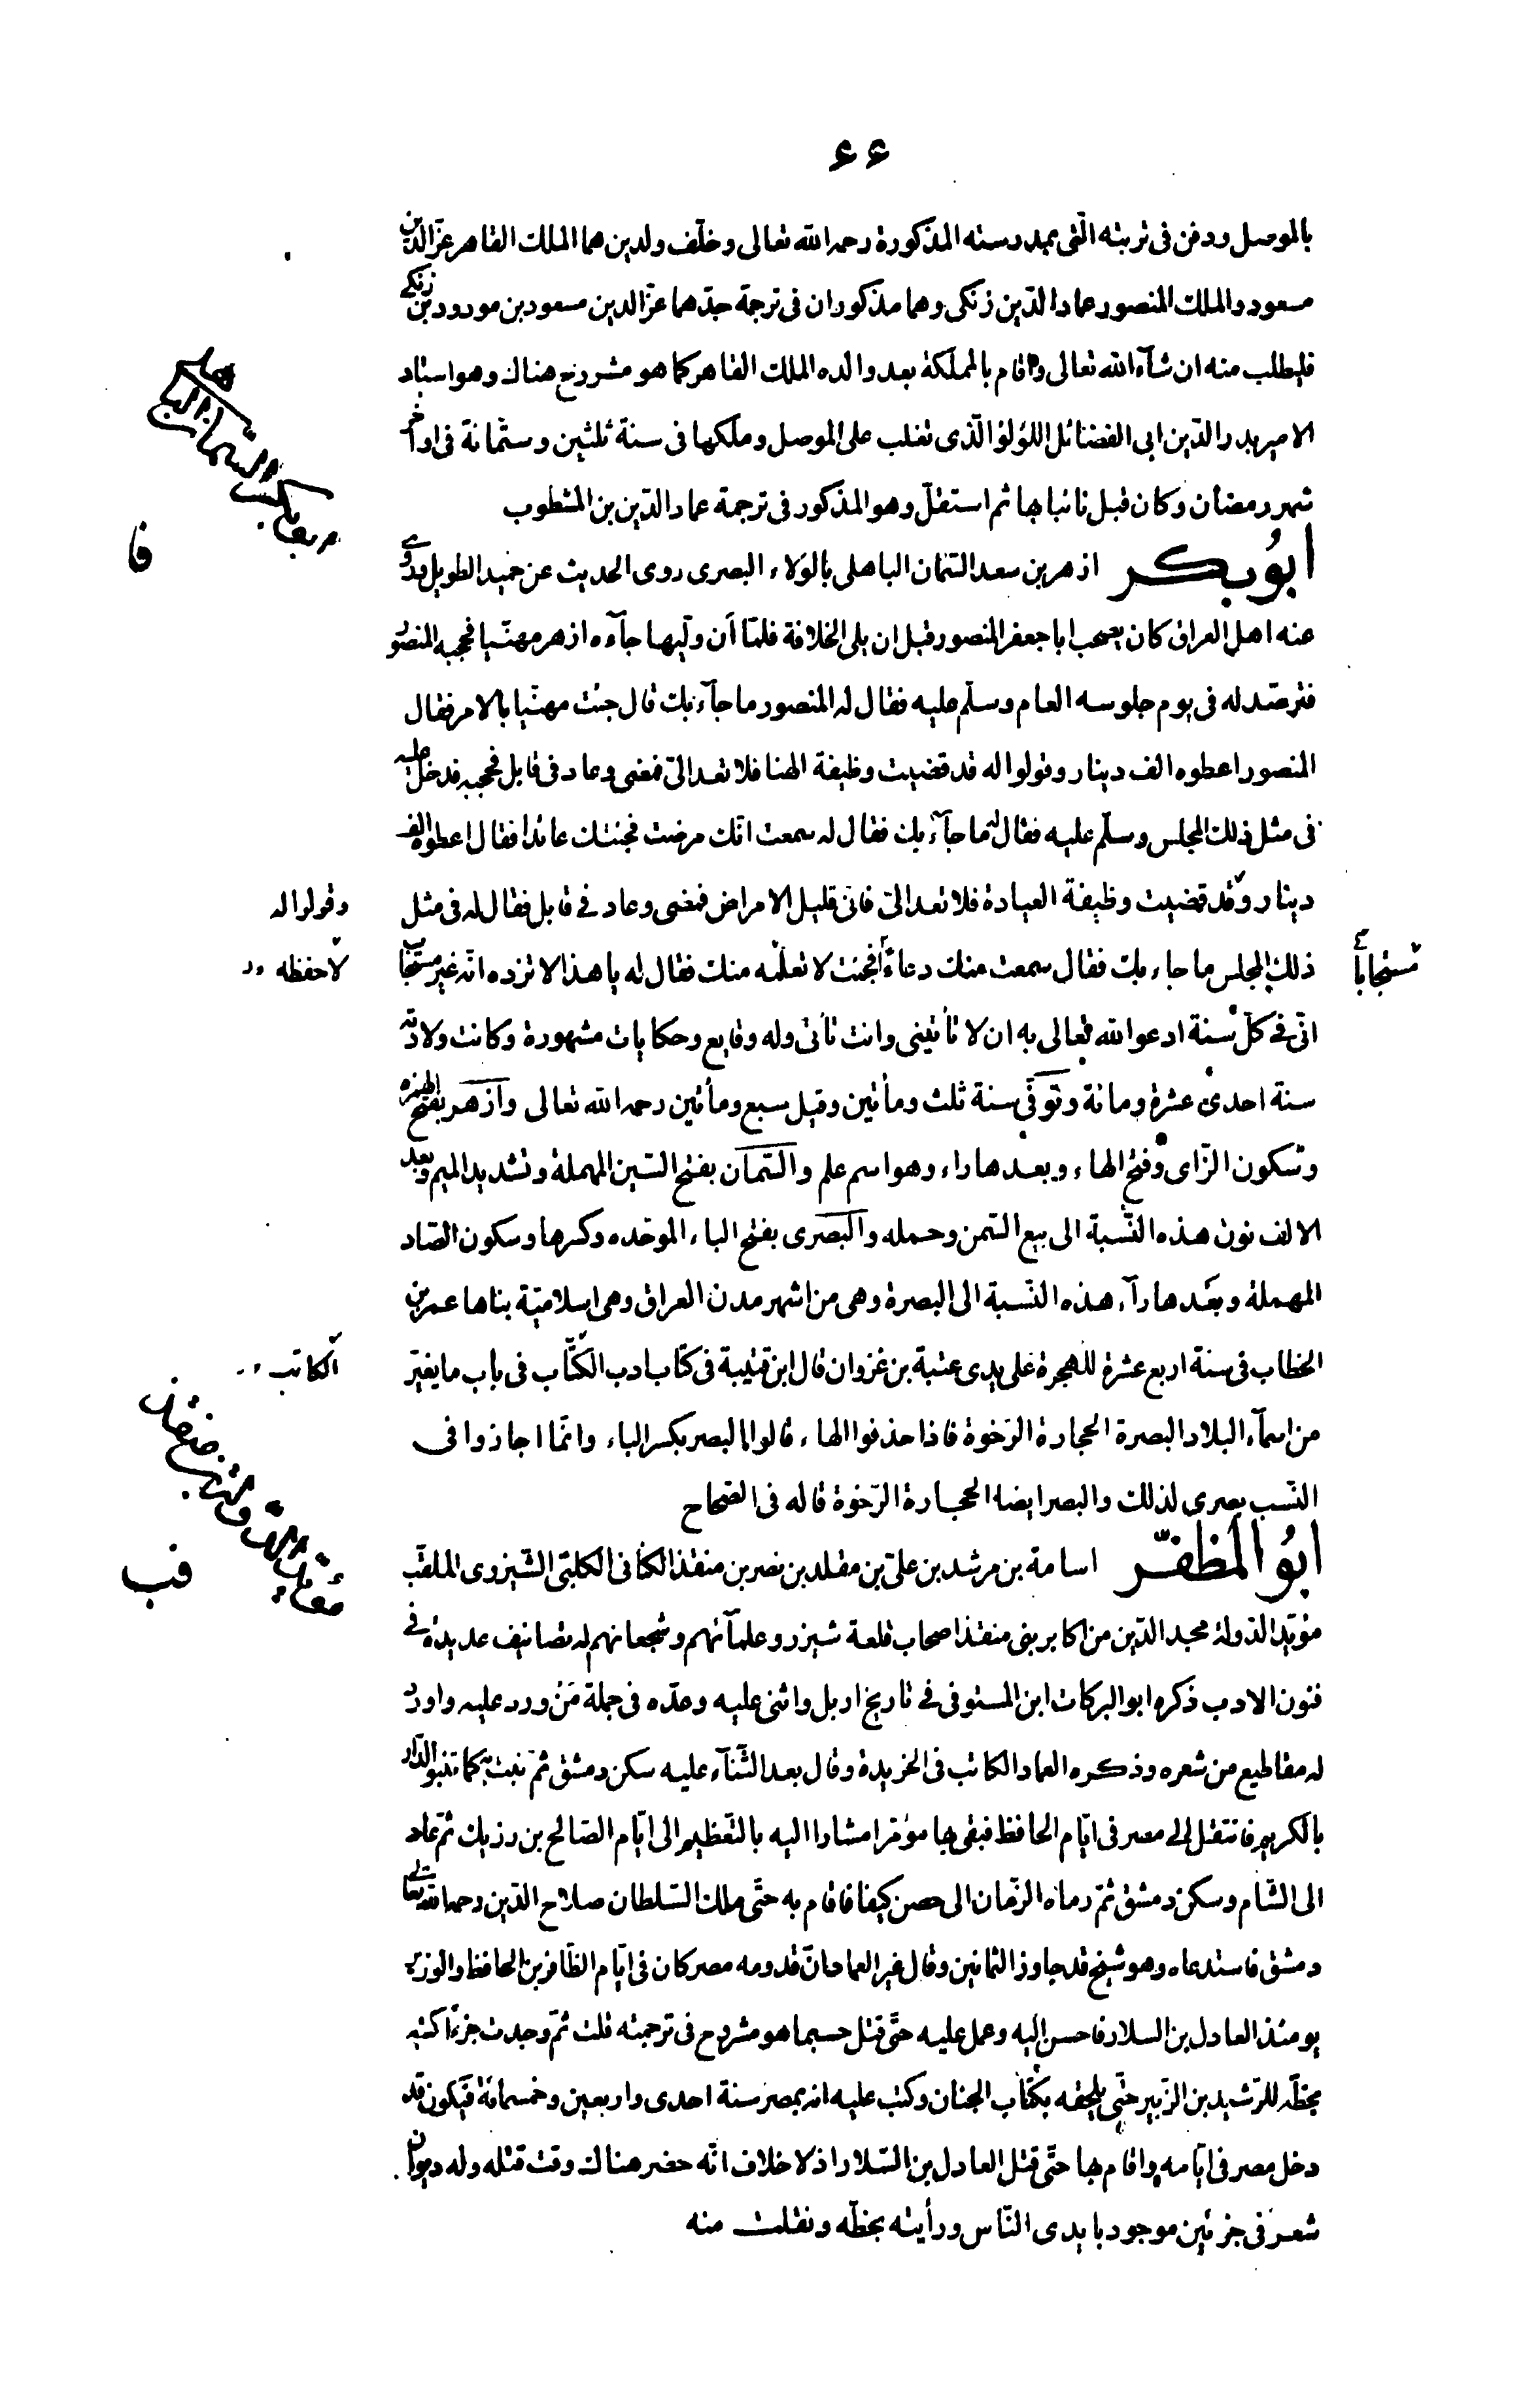 ٤٤
بالموصل ودفن فى تربته الّتى بمدرسته المذكورة رحمه الله تعالى وخلّف ولدين هما الملك القاهر عزّالدّين
مسعود والملك المنصور عماد الدّين زنكى وهما مذكوران فى ترجمة جدّهما عزّالدين مسعود بن مودود بن زنكى
فليطلب منه ان شآء الله تعالى واقام بالمملكة بعد والده الملك القاهر كما هو مشروح هناك وهو استاد
الامير بدر الدّين ابى الفضائل اللولؤ الّذى تغلب على الموصل وملكها فى سنة ثلثين وستّمائة فى اواخر
شهر رمضان وكان قبل نائبا بها ثم استقلّ وهو المذكور فى ترجمة عماد الدّين بن المشطوب
فا
ابُو بكر ازهر بن سعد السّمان الباهلى بالوَلاء البصرى روى الحديث عن حميد الطويل وروى
عنه اهل العراق كان يصحب ابا جعفر المنصور قبل ان يلى الخلافة فلمّا أن وليها جآءه ازهر مهنّيا فحجبه المنصور
فترصّد له فى يوم جلوسه العام وسلّم عليه فقال له المنصور ما جآء بك قال جئت مهنّيا بالامر فقال
المنصور اعطوه الف دينار وقولوا له قد قضيت وظيفة الهنا فلا تعد الىّ فمضى وعاد فى قابل فحجبه فدخل عليه
فى مثل ذلك المجلس وسلّم عليه فقال له ما جآء بك فقال له سمعت انّك مرضت فجئتك عائدا فقال اعطوه الف
دينار وقد قضيت وظيفة العيادة فلا تعد الىّ فانّى قليل الامراض فمضى وعاد فى قابل فقال له فى مثل
وقولوا له
ذلك المجلس ما جاء بك فقال سمعت منك دعاءً فجئت لاتعلّمه منك فقال له يا هذا لا تزده انّه غير مستجاب
لاحفظه
مستجاباً
انّى فى كلّ سنة ادعوا لله تعالى به ان لا تأتينى وانت تأتى وله وقايع وحكايات مشهورة وكانت ولادته
سنة احدى عشرة ومائة وتوفّى سنة ثلث ومأتين وقيل سبع ومأتين رحمه الله تعالى وازهر بفتح الهمزه
وسكون الزّاى وفتح الهاء وبعدها راء وهو اسم علم والسّمان بفتح السّين المهملة وتشديد الميم وبعد
الالف نون هذه النّسبة الى بيع السّمن وحمله والبصرى بفتح الباء الموحّده وكسرها وسكون الصّاد
المهملة وبعدها رآء هذه النّسبة الى البصرة وهى من اشهر مدن العراق وهى اسلاميّة بناها عمر بن
الخطاب فى سنة اربع عشرة للهجرة على يدى عتبة بن غزوان قال ابن قتيبة فى كتاب ادب الكتّاب فى باب ما يغيّر
الكاتب
من اسمآء البلاد البصرة الحجارة الرّخوة فاذا حذفوا الهاء قالوا البصر بكسر الباء وانّما اجازوا فى
النّسب بصرى لذلك والبصر ايضا الحجارة الرّخوة قاله فى الصّحاح
فب
ابُو المظفّر اسامة بن مرشد بن علىّ بن مقلد بن نصر بن منقذ الكنانى الكلبّى الشّيزرى الملقّب
مؤيّد الدّولة مجد الدّين من اكابر بنى منقذ اصحاب قلعة شيزر وعلمآئهم وشجعانهم له تصانيف عديدة فى
فنون الادب ذكره ابو البركات ابن المستوفى فى تاريخ اربل واثنى عليه وعدّه فى جملة مَنْ ورد عليه واورد
له مقاطيع من شعره وذكره العماد الكاتب فى الخريدة وقال بعد الثّنآء عليه سكن دمشق ثمّ نبت به كما تنبو الدّار
بالكريم فانتقل الى مصر فى ايّام الحافظ فبقى بها مؤمّرا مشارا اليه بالتعظيم الى ايّام الصّالح بن رزيك ثمّ عاد
الى الشّام وسكن دمشق ثمّ رماه الزّمان الى حصن كيفا فاقام به حتّى ملك السّلطان صلاح الدّين رحمه الله تعالى
دمشق فاستدعاه وهو شيخ قد جاوز الثمانين وقال غير العماد انّ قدومه مصر كان فى ايّام الظّافر بن الحافظ والوزير
يومئذ العادل بن السلار فاحسن اليه وعمل عليه حتّى قتل حسبما هو مشروح فى ترجمته قلت ثمّ وجدت جزءًا كتبه
بخطّه للرّشيد بن الزّبير حتّى يلحقه بكتاب الجنان وكتب عليه انه بمصر سنة احدى واربعين وخمسمائة فيكون قد
دخل مصر فى ايّامه واقام بها حتّى قتل العادل بن السّلار اذ لا خلاف انّه حضر هناك وقت قتله وله ديوان
شعر فى جزئين موجود بايدى النّاس ورأيته بخطّه ونقلت منه